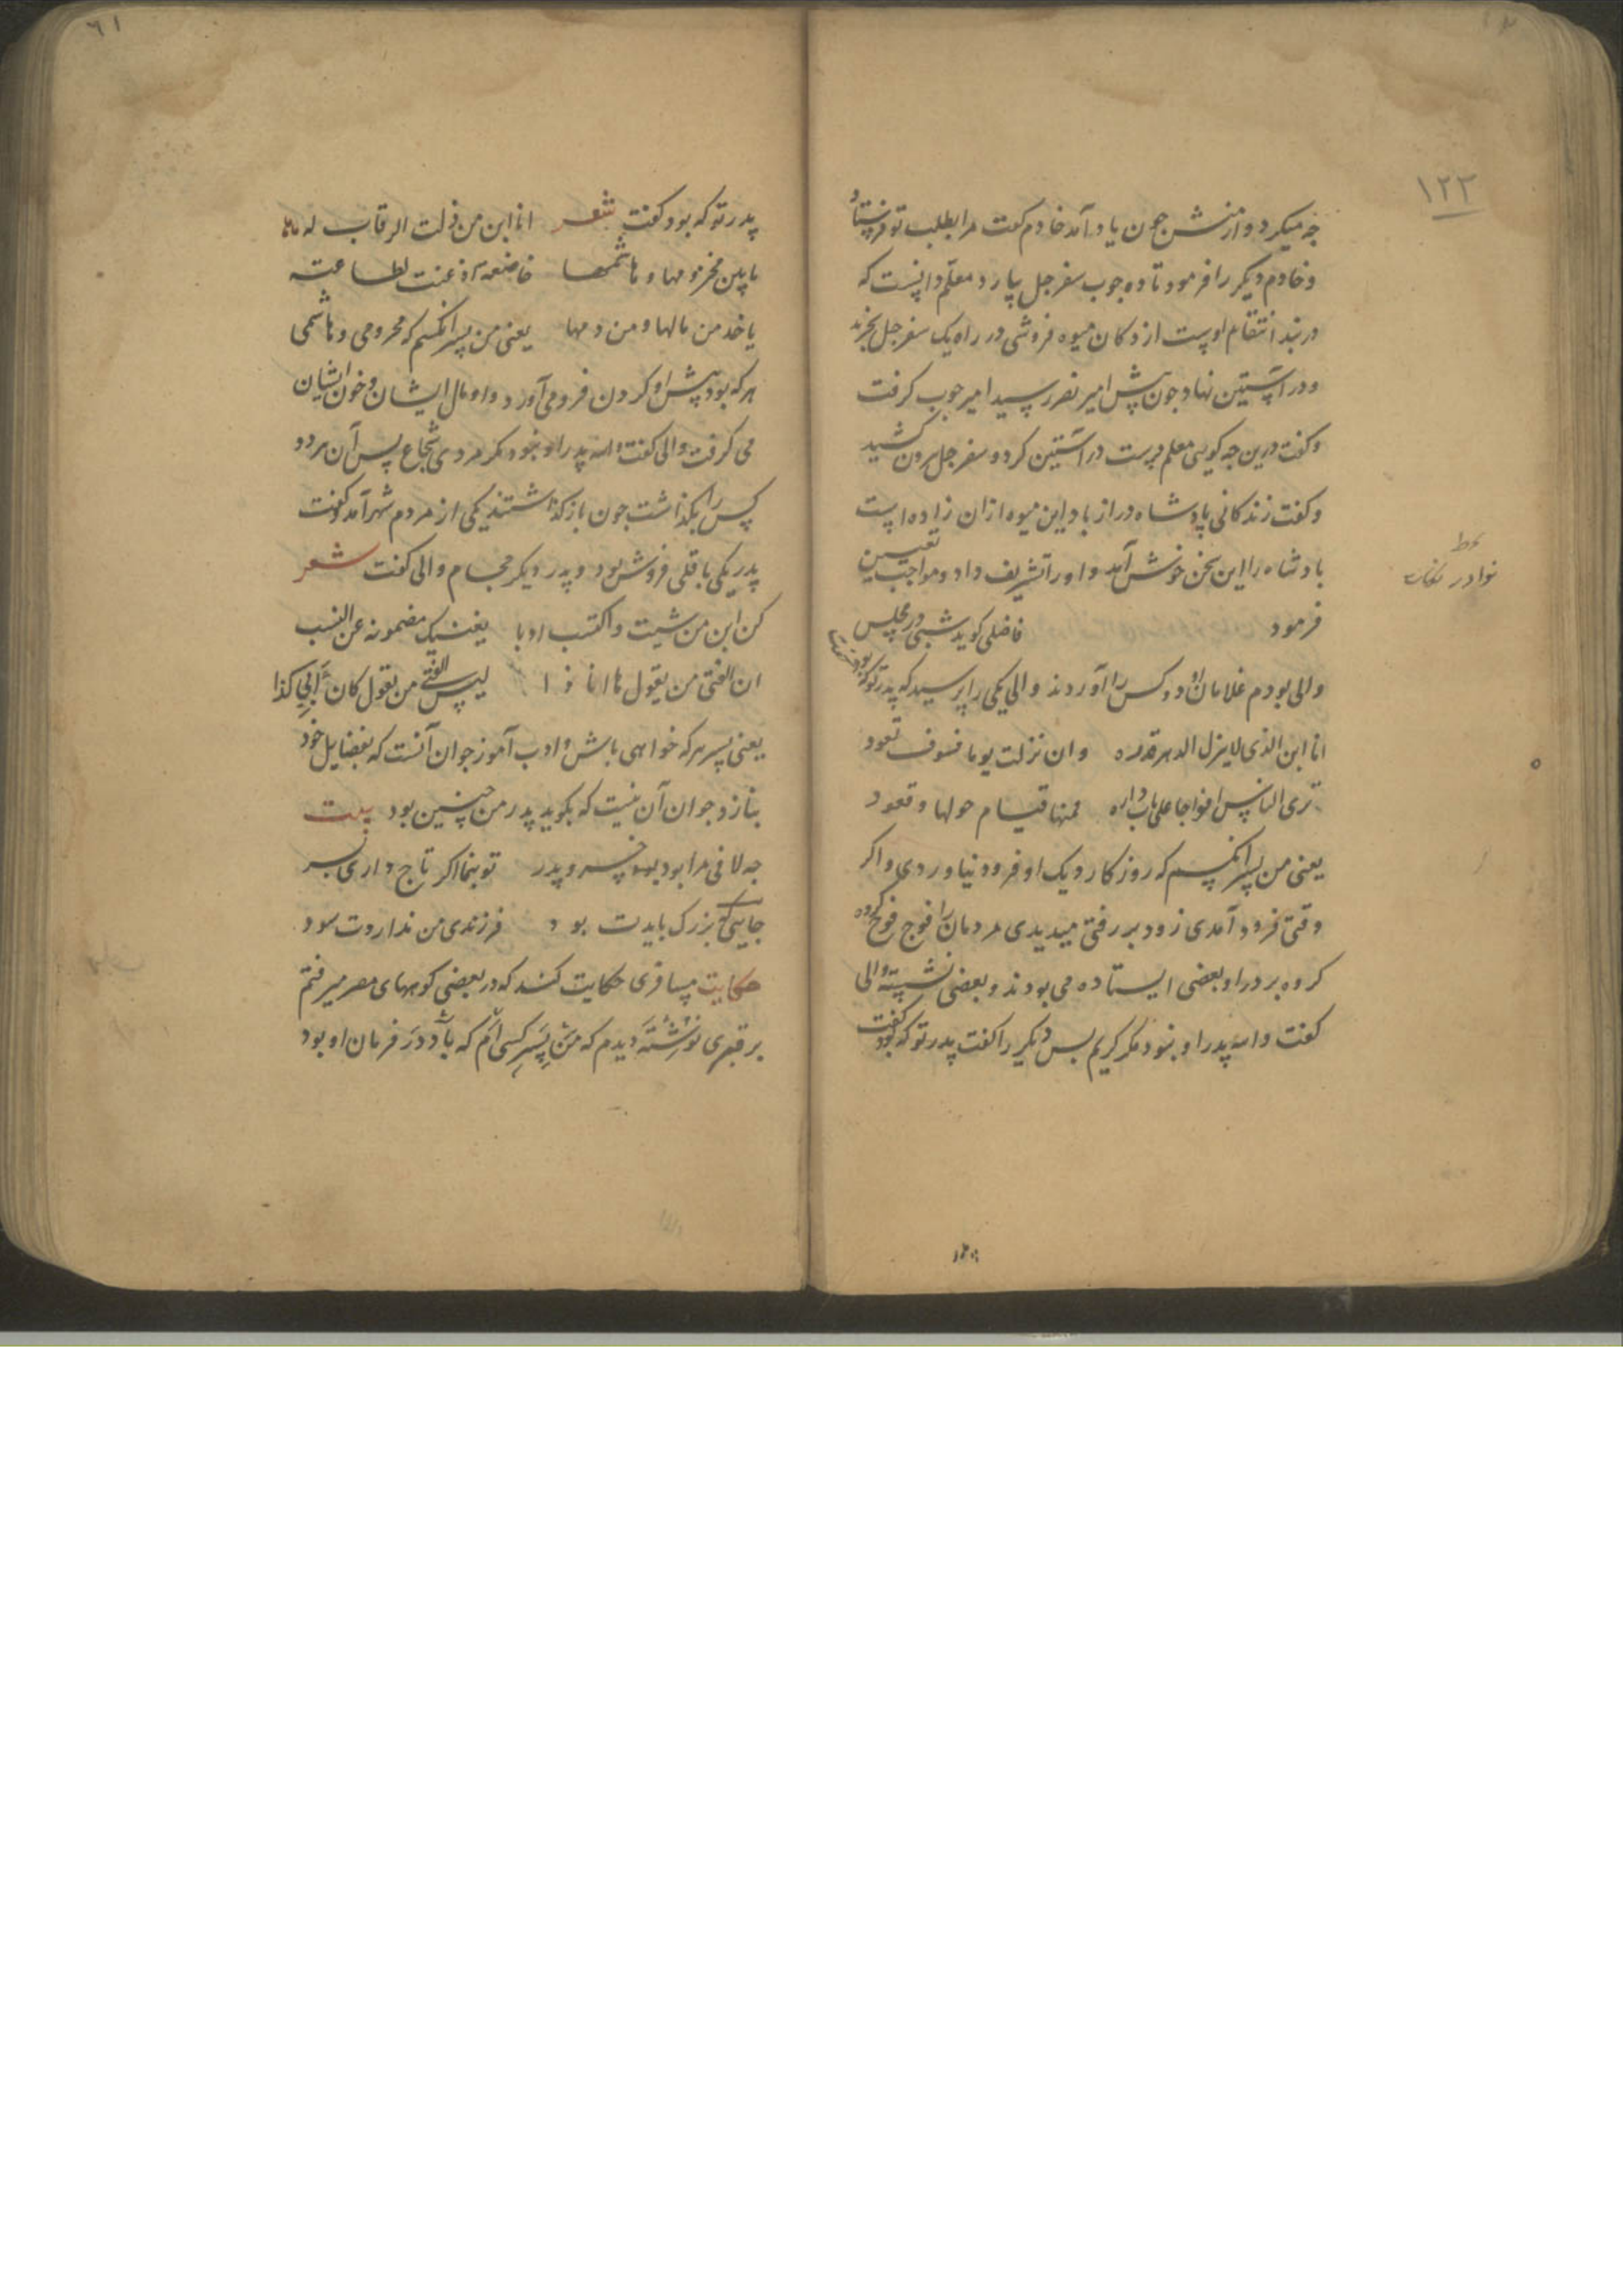 ۱۲۲
چه میکرد و از منش چون یاد آمد خادم کفت مرا بطلب تو فرستاد
و خادم دیکر را فرمود تا ده چوب سفرجل بیارد معلم دانست که
در بند انتقام اوست از دکان میوه فروشی در راه یک سفرجل بخرید
و در آستین نهاد چون پیش امیر نصر رسید امیر چوب کرفت
و کفت درین چه کویی معلم دست در آستین کرد و سفرجل برون کشید
و کفت زندکانی پادشاه دراز باد این میوه ازان زاده است
بادشاه را این سخن خوش آمد و او را تشریف داد و مواجب تعیین
فرمود فاضلی کوید شبی در مجلس
والی بودم غلامان او دو کس را آوردند والی یکی را پرسید که پدر تو که بود کفت
انا ابن الذی لا ینزل الدهر قدره وان نزلت یوما فسوف تعود
تری الناس افواجا علی باب داره فمنها قیام حولها وقعود
یعنی من پسر آنکسم که روزکار دیک او فرود نیاوردی و اکر
وقتی فرود آمدی زود بر رفتی میدیدی مردمان را فوج فوج کروه
کروه بر در او بعضی ایستاده می بودند و بعضی نشسته والی
کفت والله پدر او نبود مکر کریم پس دیکر را کفت پدر تو که بود کفت
نوادر
۶۱
پدر تو که بود کفت شعر انا ابن من ذلت الرقاب له
ما بین مخزومها و هاشمها خاضعة اذعنت لطاعته
یاخذ من مالها و من دمها یعنی من پسر آنکسم که مخزومی و هاشمی
هر که بود پیش او کردن فرو می آورد و او مال ایشان و خون ایشان
می کرفت والی کفت والله پدر او نبود مکر مردی شجاع پس آن هر دو
کس را بکذاشت چون باز کذاشتند یکی از مردم شهر آمد و کفت
پدر یکی باقلی فروش بود و پدر دیکر حجام والی کفت شعر
کن ابن من شیت واکتسب ادبا یغنیک مضمونه عن النسب
ان الفتی من یقول ها انا ذا لیس الفتی من یقول کان ابی کذا
یعنی پسر هر که خواهی باش و ادب آموز جوان آنست که بفضایل خود
بنازد جوان آن نیست که بکوید پدر من چنین بود بیت
چه لافی مرا بود خسرو پدر تو بنما اکر تاج داری بسر
جاییکه بزرک بایدت بود فرزندی من نداردت سود
حکایت مسافری حکایت کند که در بعضی کوههای مصر میرفتم
بر قبری نوشته دیدم که من پسر کسی ام که باد در فرمان او بود